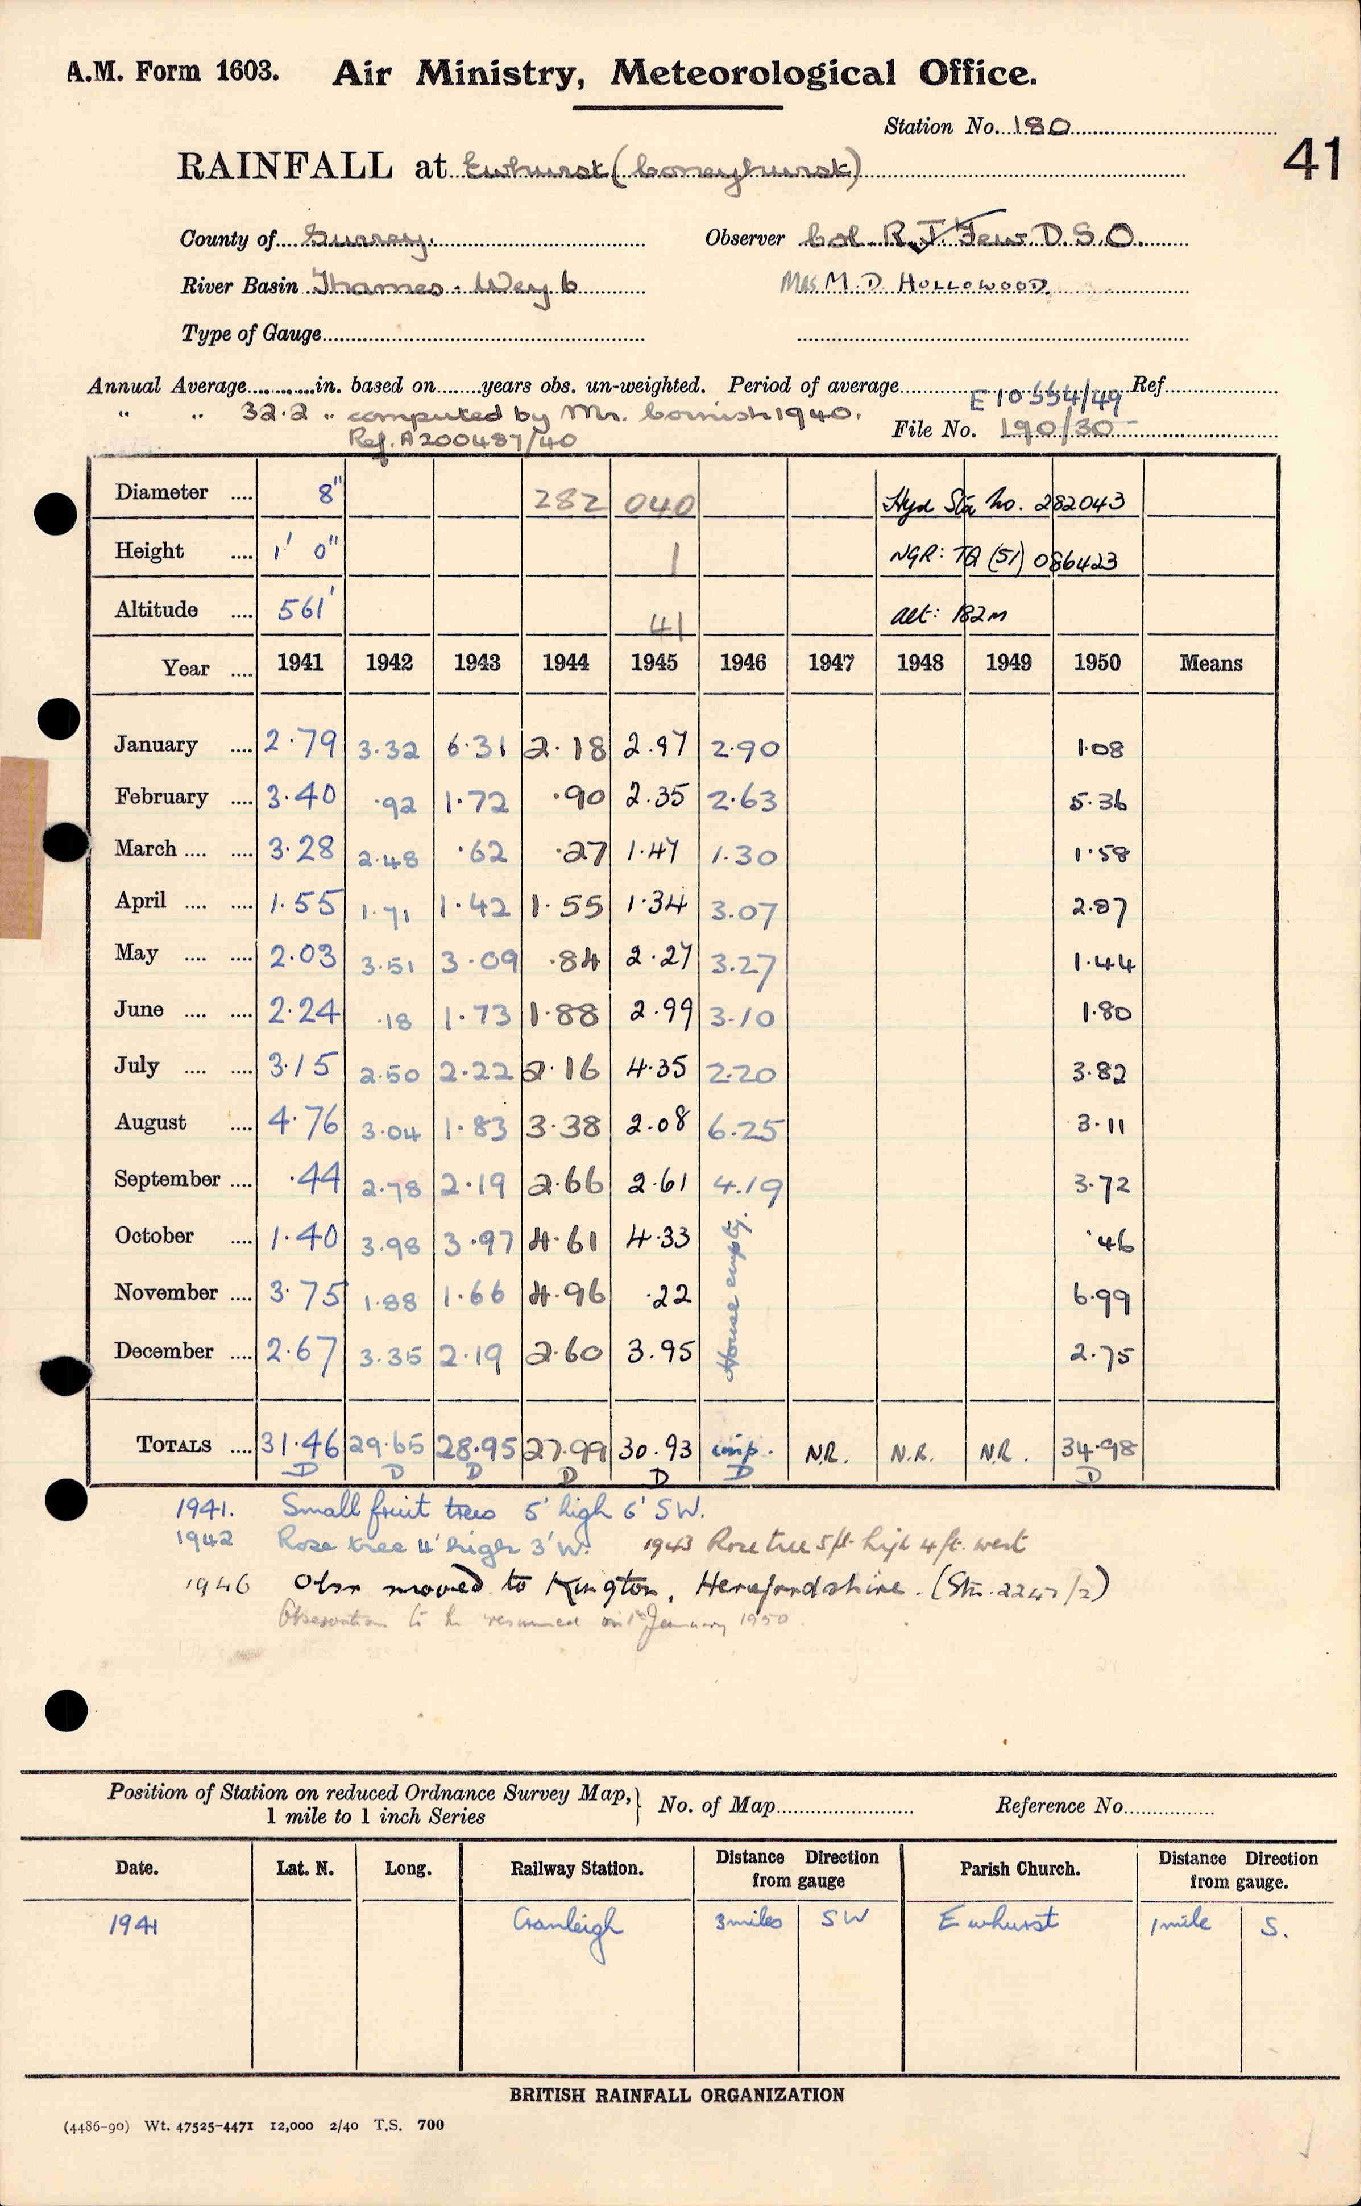 A.M. Form 1603. Air Ministry, Meteorological Office.
Station No. 180
41
RAINFALL at Ewhurst (Coneyhurst)
County of Surrey. Observer Col. R. J. Few D.S.O.
River Basin Thames - Wey b Mrs M. D HOLLOWOOD
Type of Gauge
Annual Average in. based on years obs. un-weighted. Period of average Ref
E10554/49
" " 32.2 " computed by Mr. Cornish 1940. File No. 190/30
Ref. A200487/40
Diameter .... 8" 282 040 Hyd Sta No. 282043
Height .... 1' 0" 1 NGR: TQ (51) 086423
Altitude .... 561' 41 alt: 182m
Year .... 1941 1942 1943 1944 1945 1946 1947 1948 1949 1950 Means
January .... 2.79 3.32 6.31 2.18 2.97 2.90 1.08
February .... 3.40 .92 1.72 .90 2.35 2.63 5.36
March .... .... 3.28 2.48 .62 .27 1.47 1.30 1.58
April .... .... 1.55 1.71 1.42 1.55 1.34 3.07 2.87
May .... .... 2.03 3.51 3.09 .84 2.27 3.27 1.44
June .... .... 2.24 .18 1.73 1.88 2.99 3.10 1.80
July .... .... 3.15 2.50 2.22 2.16 4.35 2.20 3.82
August .... 4.76 3.04 1.83 3.38 2.08 6.25 3.11
September .... .44 2.78 2.19 2.66 2.61 4.19 3.72
October .... 1.40 3.98 3.97 4.61 4.33 House empty. .46
November .... 3.75 1.88 1.66 4.96 .22 6.99
December .... 2.67 3.35 2.19 2.60 3.95 2.75
TOTALS .... 31.46 29.65 28.95 27.99 30.93 imp. N.R. N.R. N.R. 34.98
D D D D D D D
1941. Small fruit trees 5' high 6' SW.
1942 Rose tree 4' high 3' W. 1943 Rose tree 5ft high 4 ft. west
1946 Obsr moved to Kington, Herefordshire. (Stn. 2247/2)
Observations to be resumed on 1st January 1950.
Position of Station on reduced Ordnance Survey Map, 1 mile to 1 inch Series } No. of Map Reference No.
Date. Lat. N. Long. Railway Station. Distance Direction from gauge Parish Church. Distance Direction from gauge.
1941 Cranleigh 3 miles SW Ewhurst 1 mile S.
BRITISH RAINFALL ORGANIZATION
(4486-90) Wt. 47525-4471 12,000 2/40 T.S. 700